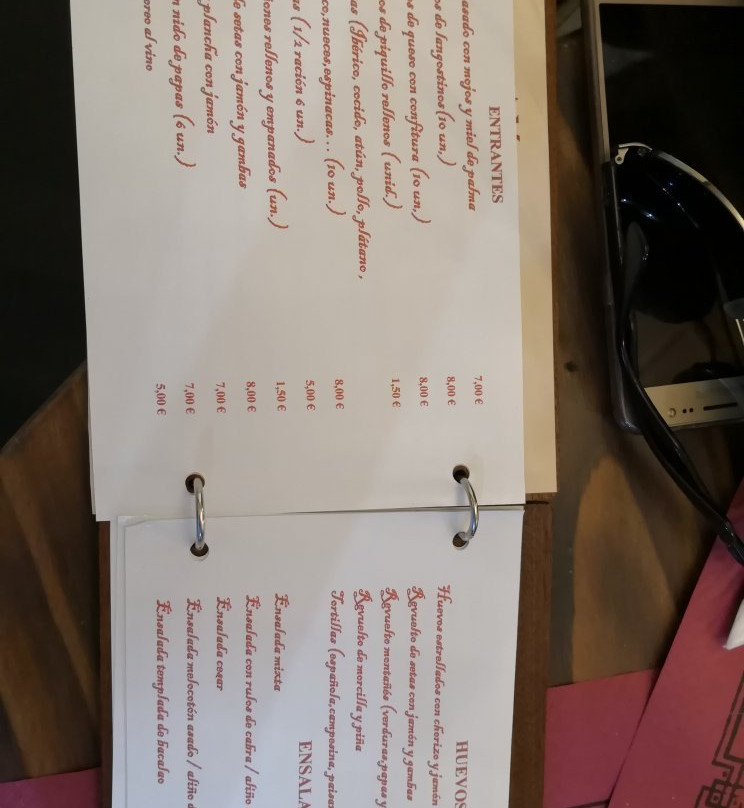 ENTRANTES
asado con mojos y miel de palma 7,00 €
de langostinos (10 un,) 8,00 €
de queso con confitura (10 un,) 8,00 €
de piquillo rellenos (unid.) 1,50 €
(Ibérico, cocido, atún, pollo, plátano,
nueces, espinacas... (10 un.) 8,00 €
(1/2 ración 6 un.) 5,00 €
rellenos y empanados (un.) 1,50 €
de setas con jamón y gambas 8,00 €
plancha con jamón 7,00 €
nido de papas (6 un.) 7,00 €
al vino 5,00 €
HUEVOS
Huevos estrellados con chorizo y jamón
Revuelto de setas con jamón y gambas
Revuelto montañés (verduras, papas y
Revuelto de morcilla y piña
Tortillas (española, campesina,
Ensalada mixta
Ensalada con rulos de cabra / aliño
Ensalada cesar
Ensalada melocotón asado / aliño
Ensalada templada de bacalao